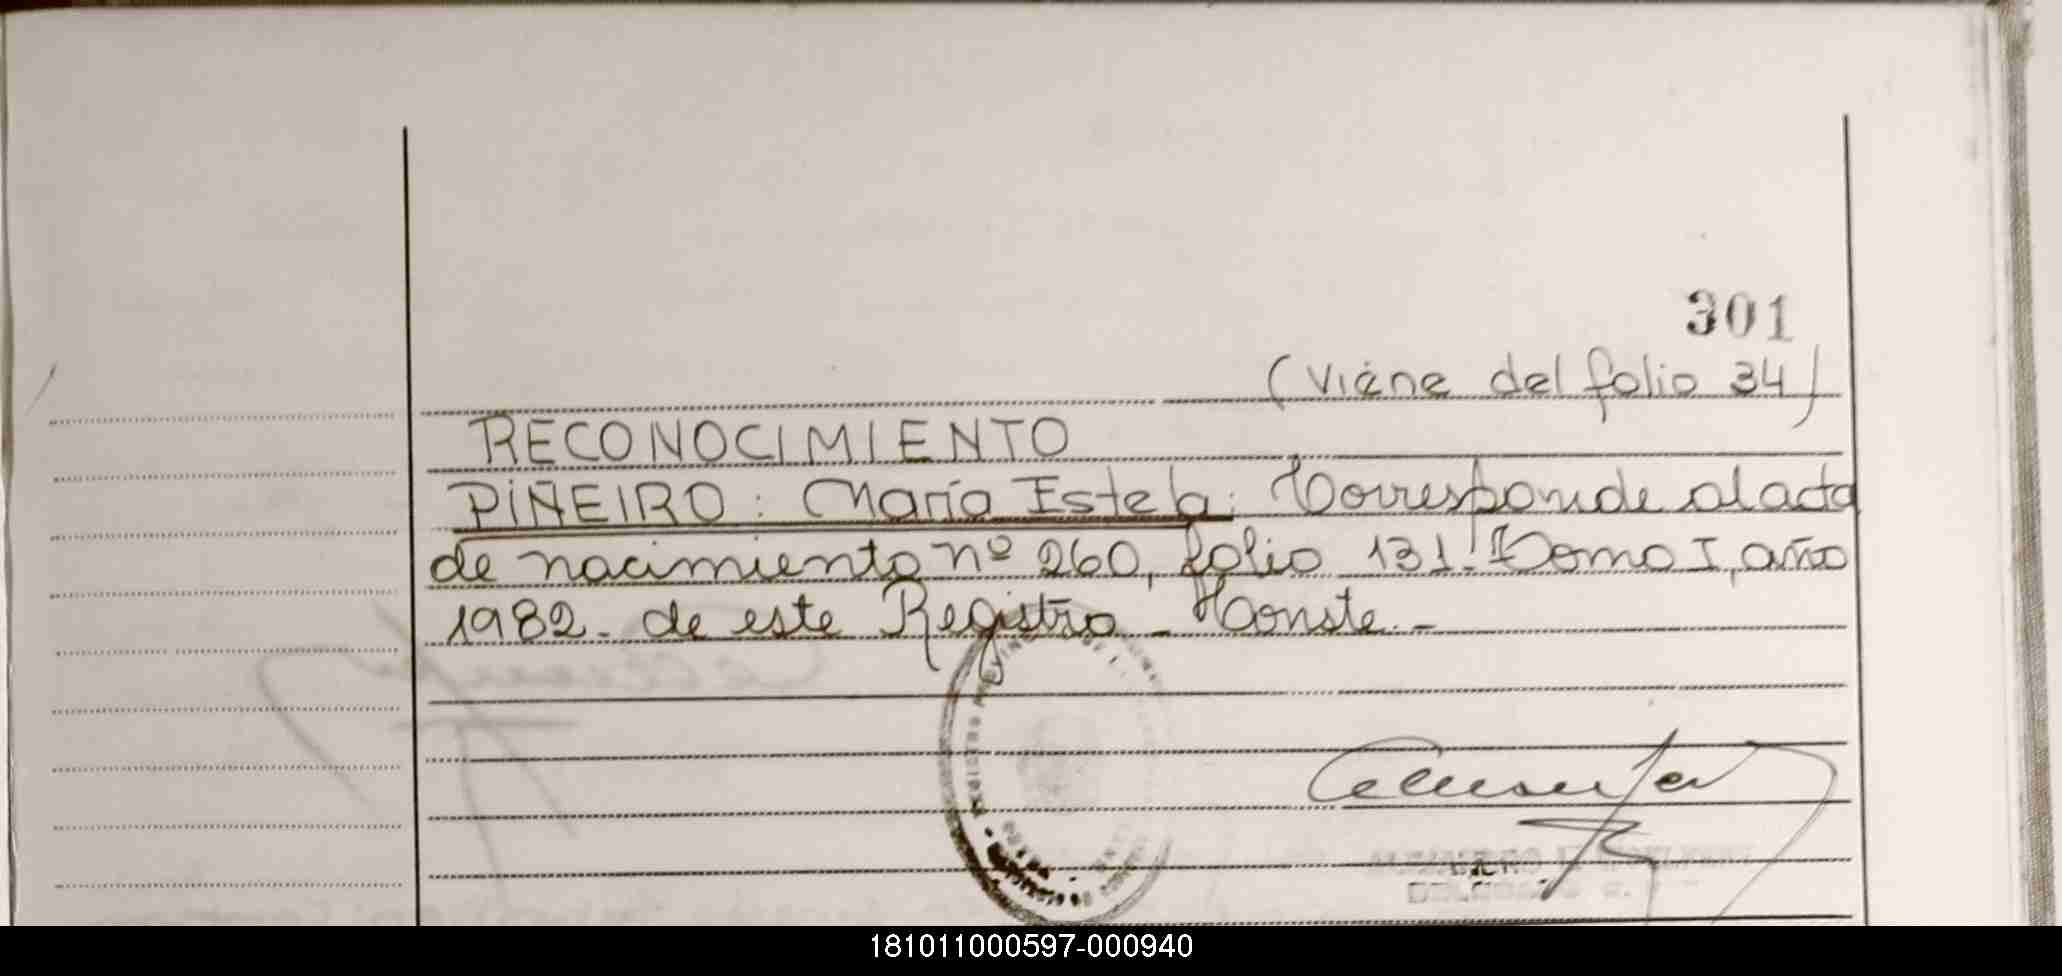 301
(Viene del folio 34)
RECONOCIMIENTO
PIÑEIRO: María Estela: Corresponde al acta
de nacimiento nº 260, folio 131. Tomo I, año
1982. de este Registro - Conste. -
181011000597-000940